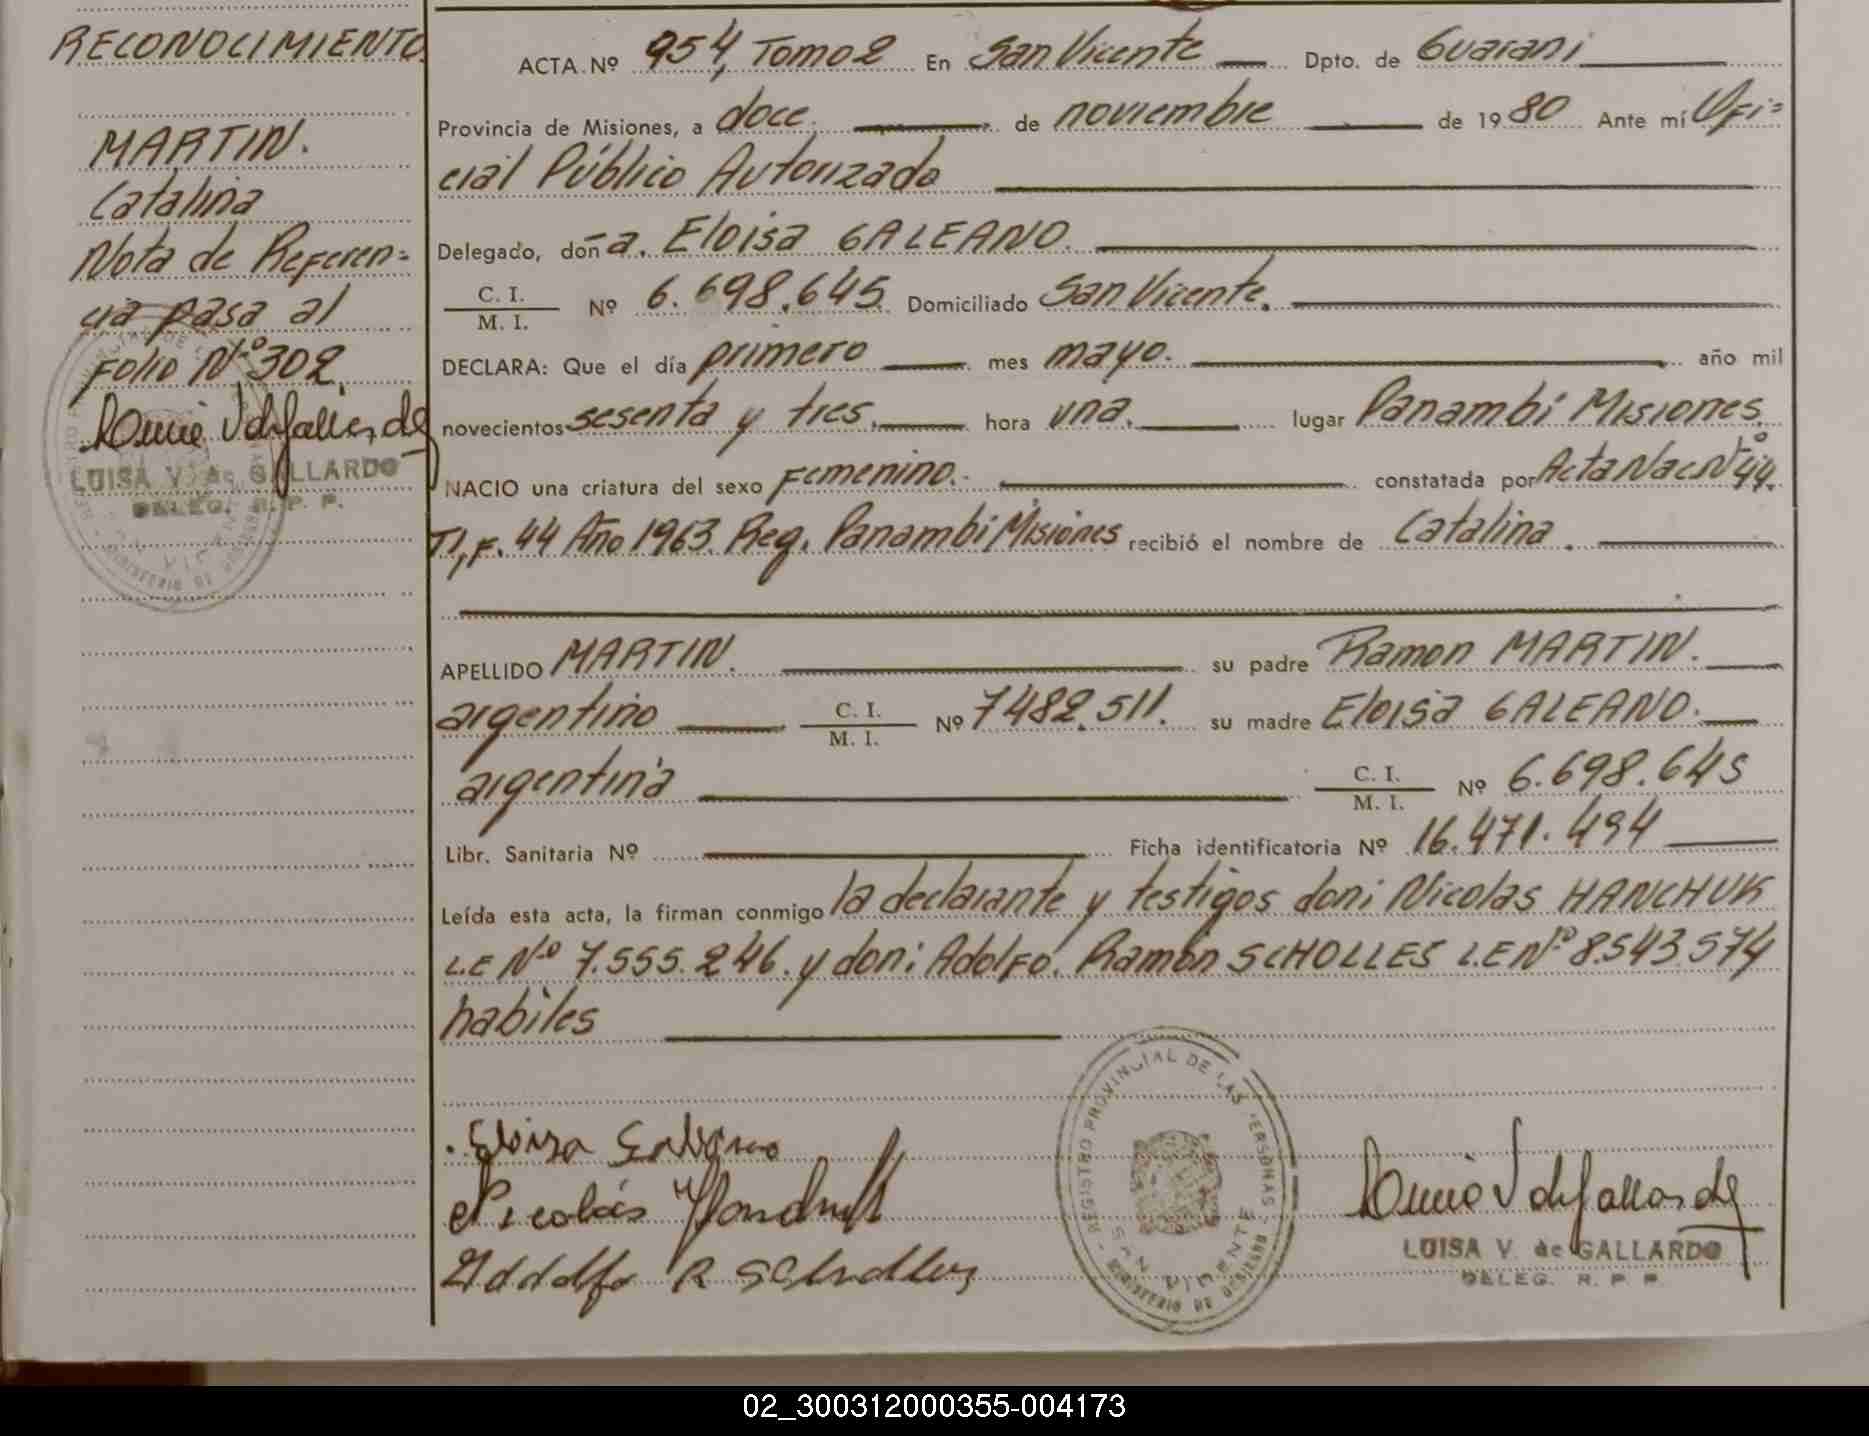 RECONOCIMIENTO
MARTIN.
Catalina
Nota de Referen=
cia pasa al
Folio Nº 302.
LUISA V. de GALLARDO
DELEG. R. P. P.
ACTA Nº 954, Tomo 2 En San Vicente Dpto. de Guarani
Provincia de Misiones, a doce de noviembre de 1980 Ante mí Ofi=
cial Público Autorizado
Delegado, doña. Eloisa GALEANO.
C. I.
M. I. Nº 6.698.645 Domiciliado San Vicente.
DECLARA: Que el día primero mes mayo. año mil
novecientos sesenta y tres. hora una. lugar Panambi Misiones.
NACIO una criatura del sexo Femenino. constatada por Acta Nac Nº 44.
T1, F. 44 Año 1963. Reg. Panambi Misiones recibió el nombre de Catalina.
APELLIDO MARTIN. su padre Ramon MARTIN.
argentino C. I.
M. I. Nº 7482.511. su madre Eloisa GALEANO.
argentina C. I.
M. I. Nº 6.698.645
Libr. Sanitaria Nº Ficha identificatoria Nº 16.471.494
Leída esta acta, la firman conmigo la declarante y testigos don: Nicolas HANCHUK
L.E Nº 7.555.246. y don: Adolfo. Ramón SCHOLLES L.E Nº 8.543.574
habiles
Eloisa Galeano
Nicolás Hanchuk
Adolfo R Scholles
REGISTRO PROVINCIAL DE LAS PERSONAS
SAN VICENTE
MINISTERIO DE GOBIERNO
LUISA V. de GALLARDO
DELEG. R. P. P.
02_300312000355-004173